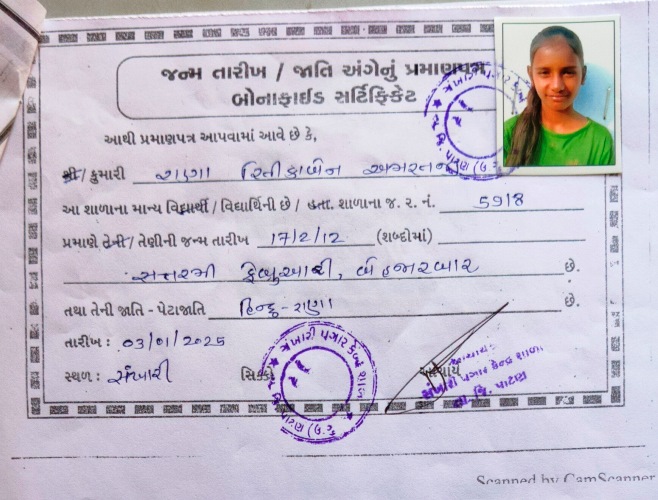 જન્મ તારીખ / જાતિ અંગેનું પ્રમાણપત્ર
બોનાફાઈડ સર્ટિફિકેટ
આથી પ્રમાણપત્ર આપવામાં આવે છે કે,
શ્રી / કુમારી રાણા રિતીકાબેન અમરતજી
આ શાળાના માન્ય વિદ્યાર્થી / વિદ્યાર્થિની છે / હતા. શાળાના જ. ર. નં. 5918
પ્રમાણે તેની / તેણીની જન્મ તારીખ 17/2/12 (શબ્દોમાં)
સત્તરમી ફેબ્રુઆરી, બે હજારબાર છે.
તથા તેની જાતિ - પેટાજાતિ હિન્દુ-રાણા છે.
તારીખ : 03/01/2025
સ્થળ : સંખારી સિક્કો આચાર્ય
આચાર્ય
સંખારી પગાર કેન્દ્ર શાળા
તા. જિ. પાટણ
Scanned by CamScanner